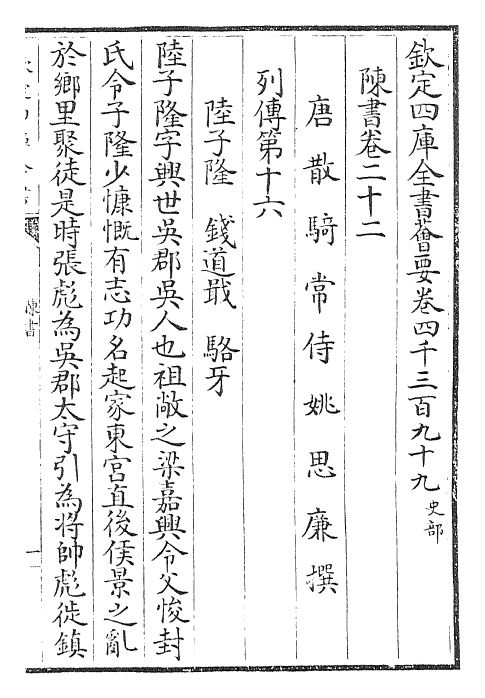 欽定四庫全書薈要卷四千三百九十九史部
陳書卷二十二
唐散騎常侍姚思廉撰
列傳第十六
陸子隆 錢道戢 駱牙
陸子隆字興世吳郡吳人也祖敞之梁嘉興令父悛封
氏令子隆少慷慨有志功名起家東宮直後侯景之亂
於鄉里聚徒是時張彪為吳郡太守引為將帥彪徙鎮
陳書
一